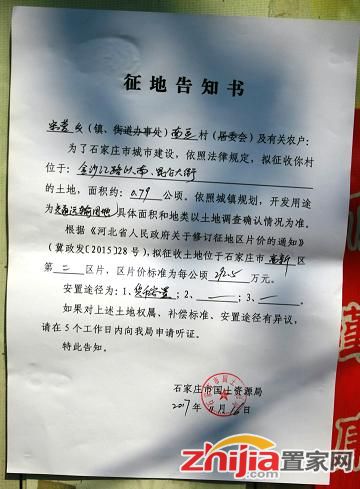 征地告知书
宋营乡(镇、街道办事处)南豆村(居委会)及有关农户:
为了石家庄市城市建设,依照法律规定,拟征收你村
位于:金沙江路以南、昆仑大街
的土地,面积约:0.79公顷。依照城镇规划,开发用途
为交通运输用地,具体面积和地类以土地调查确认情况为准。
根据《河北省人民政府关于修订征地区片价的通知》
(冀政发[2015]28号),拟征收土地位于石家庄市高新区
第二区片,区片价标准为每公顷292.5万元。
安置途径为:1、货币安置;2、—;3、—。
如果对上述土地权属、补偿标准、安置途径有异议,
请在5个工作日内向我局申请听证。
特此告知。
石家庄市国土资源局
2017年11月16日
zhijia置家网